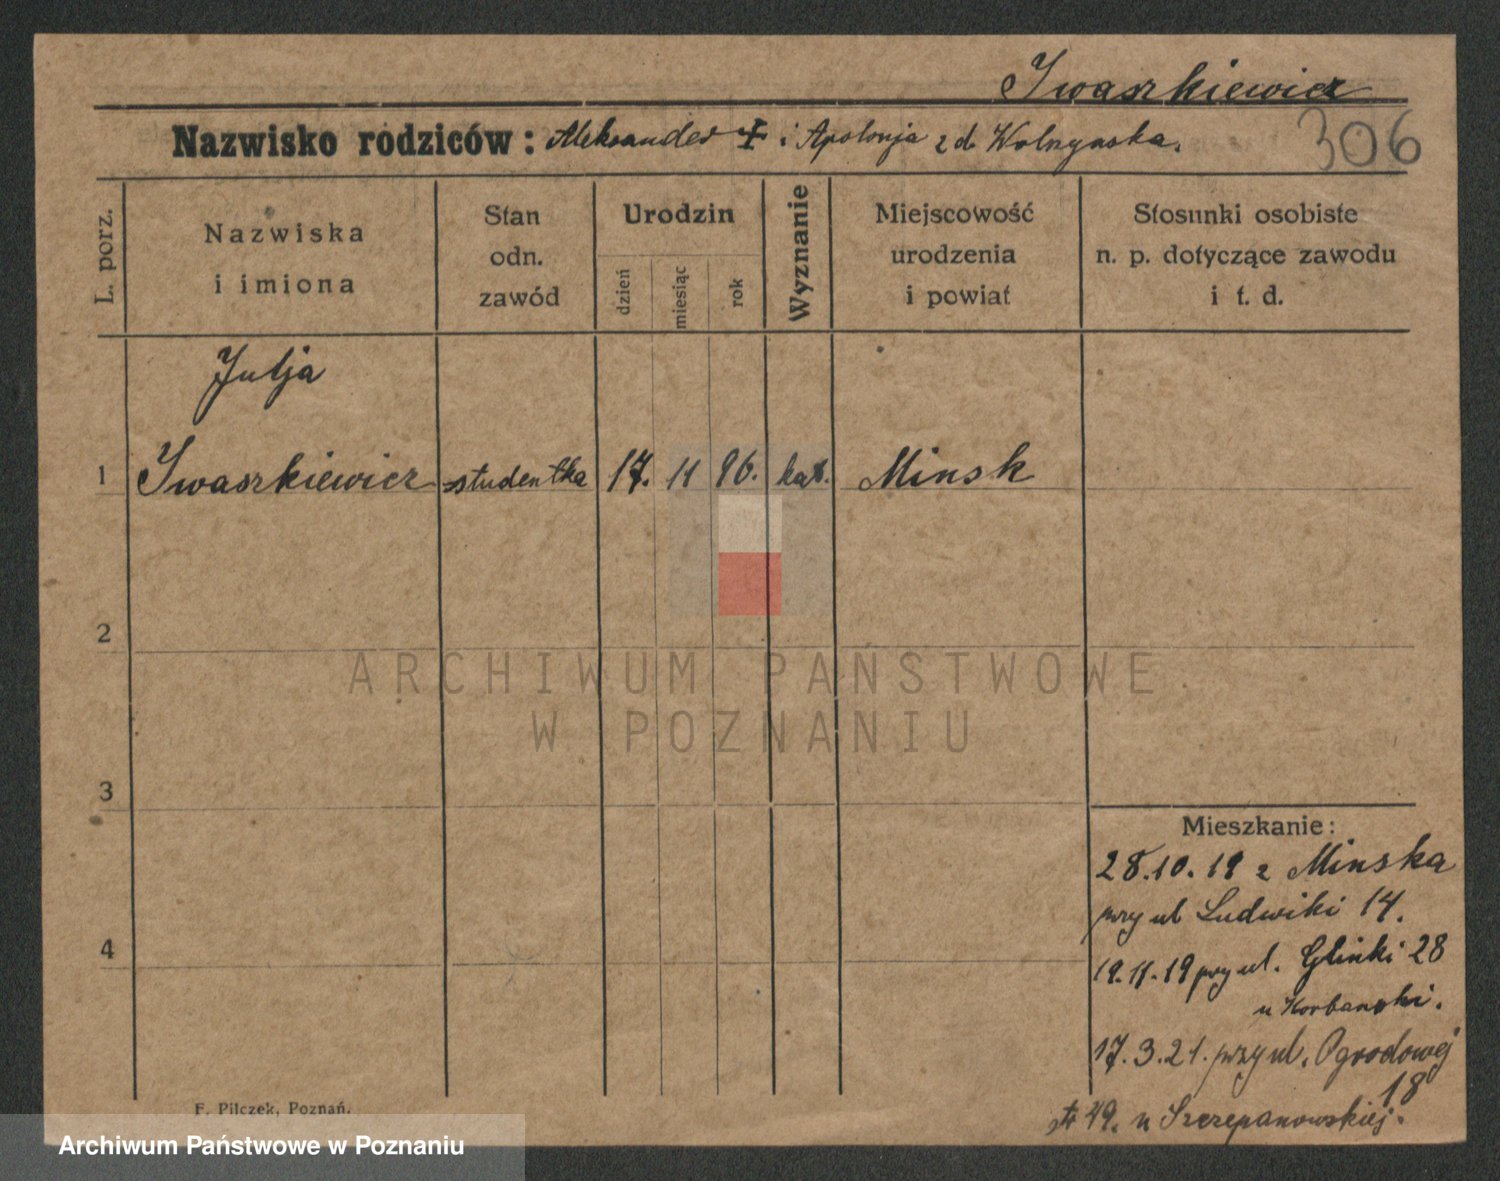 Iwaszkiewicz
Nazwisko rodziców: Aleksander + i Apolonja z d. Wolnynska.
306
L. porz.
Nazwiska
i imiona
Stan
odn.
zawód
Urodzin
dzień
miesiąc
rok
Wyznanie
Miejscowość
urodzenia
i powiat
Stosunki osobiste
n. p. dotyczące zawodu
i t. d.
Julja
1 Iwaszkiewicz studentka 17. 11 96. kat. Minsk
2
ARCHIWUM PAŃSTWOWE
W POZNANIU
3
Mieszkanie:
28.10.19 z Minska
przy ul Ludwiki 14.
4
19.11.19 przy ul. Glinki 28
u Korbanski.
17.3.21. przy ul. Ogrodowej
18
49. u Szczepanowskiej.
F. Pilczek, Poznań.
Archiwum Państwowe w Poznaniu